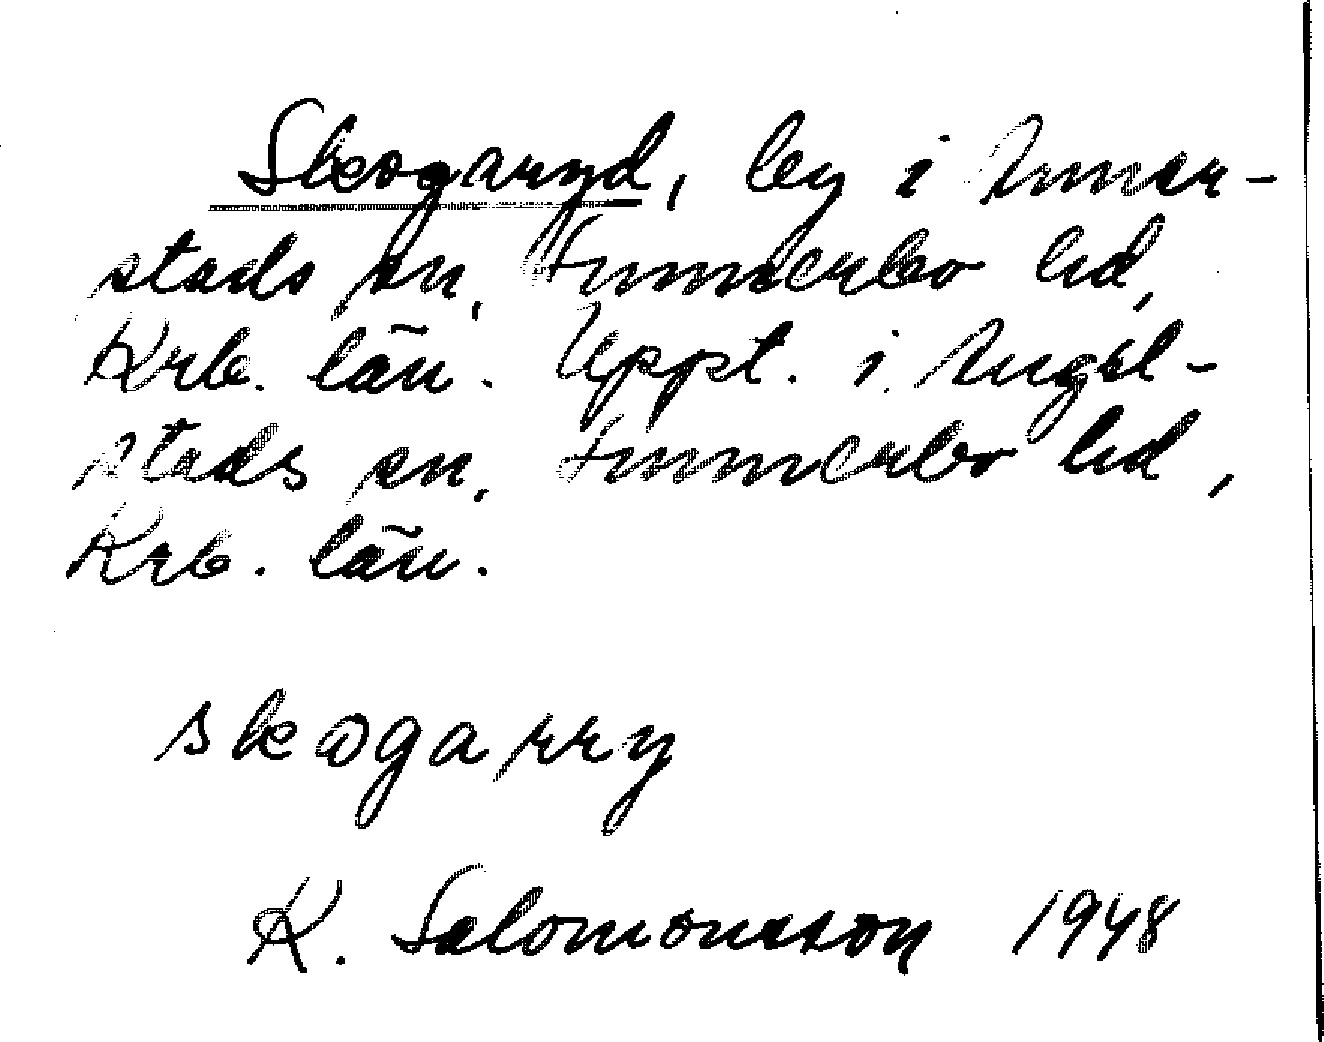 Skogaryd, by i Anner-
stads sn, Sunnerbo hd,
Krb. län. Uppt. i Angel-
stads sn, Sunnerbo hd,
Krb. län.
skogarry
K. Salomonsson 1948